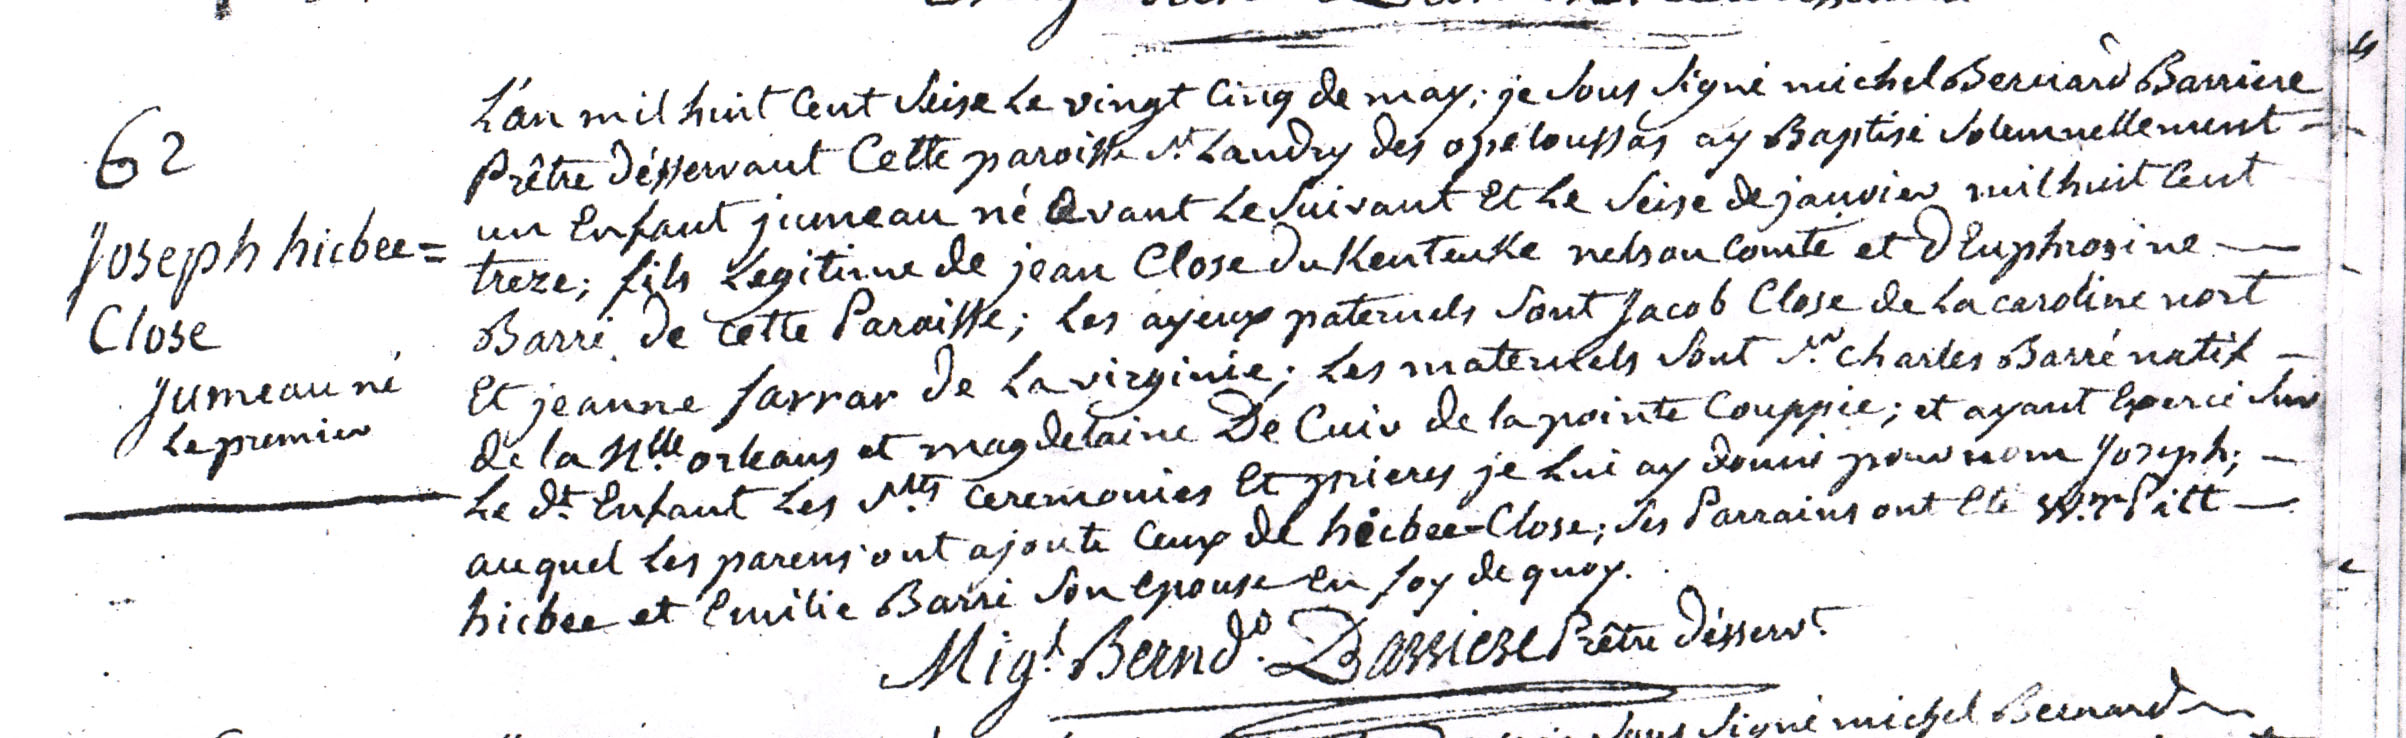 62
Joseph hicbee=
Close
Jumeau né
Le premier
L'an mil huit Cent Seise Le vingt Cinq de may; je Sous Signé michel Bernard Barriere
Prêtre désservant Cette paroisse St Landry des opeloussas ay Baptisé Solemnellement
un Enfant jumeau né avant Le Suivant Et Le Seise de janvier mil huit Cent
treze; fils Legitime de jean Close du Kentenke nelson Comté et d'Euphrosine
Barré de Cette Paroisse; Les ayeux paternels Sont Jacob Close de La caroline nort
Et jeanne farrar de La virginie; Les maternels Sont Sr Charles Barré natif
de la Nlle orleans et magdelaine De Cuir de la pointe Couppée; et ayant Exercé Sur
Le dt Enfant Les Stes ceremonies Et prieres je Lui ay donné pour nom Joseph;
auquel Les parens ont ajouté Ceux de hicbee=Close; Ses Parrains ont Eté Wm Pitt
hicbee et Emilie Barré Son Epouse En foy de quoy.
Migl Bernd. Barriere Prêtre désservt
Sous Signé michel Bernard